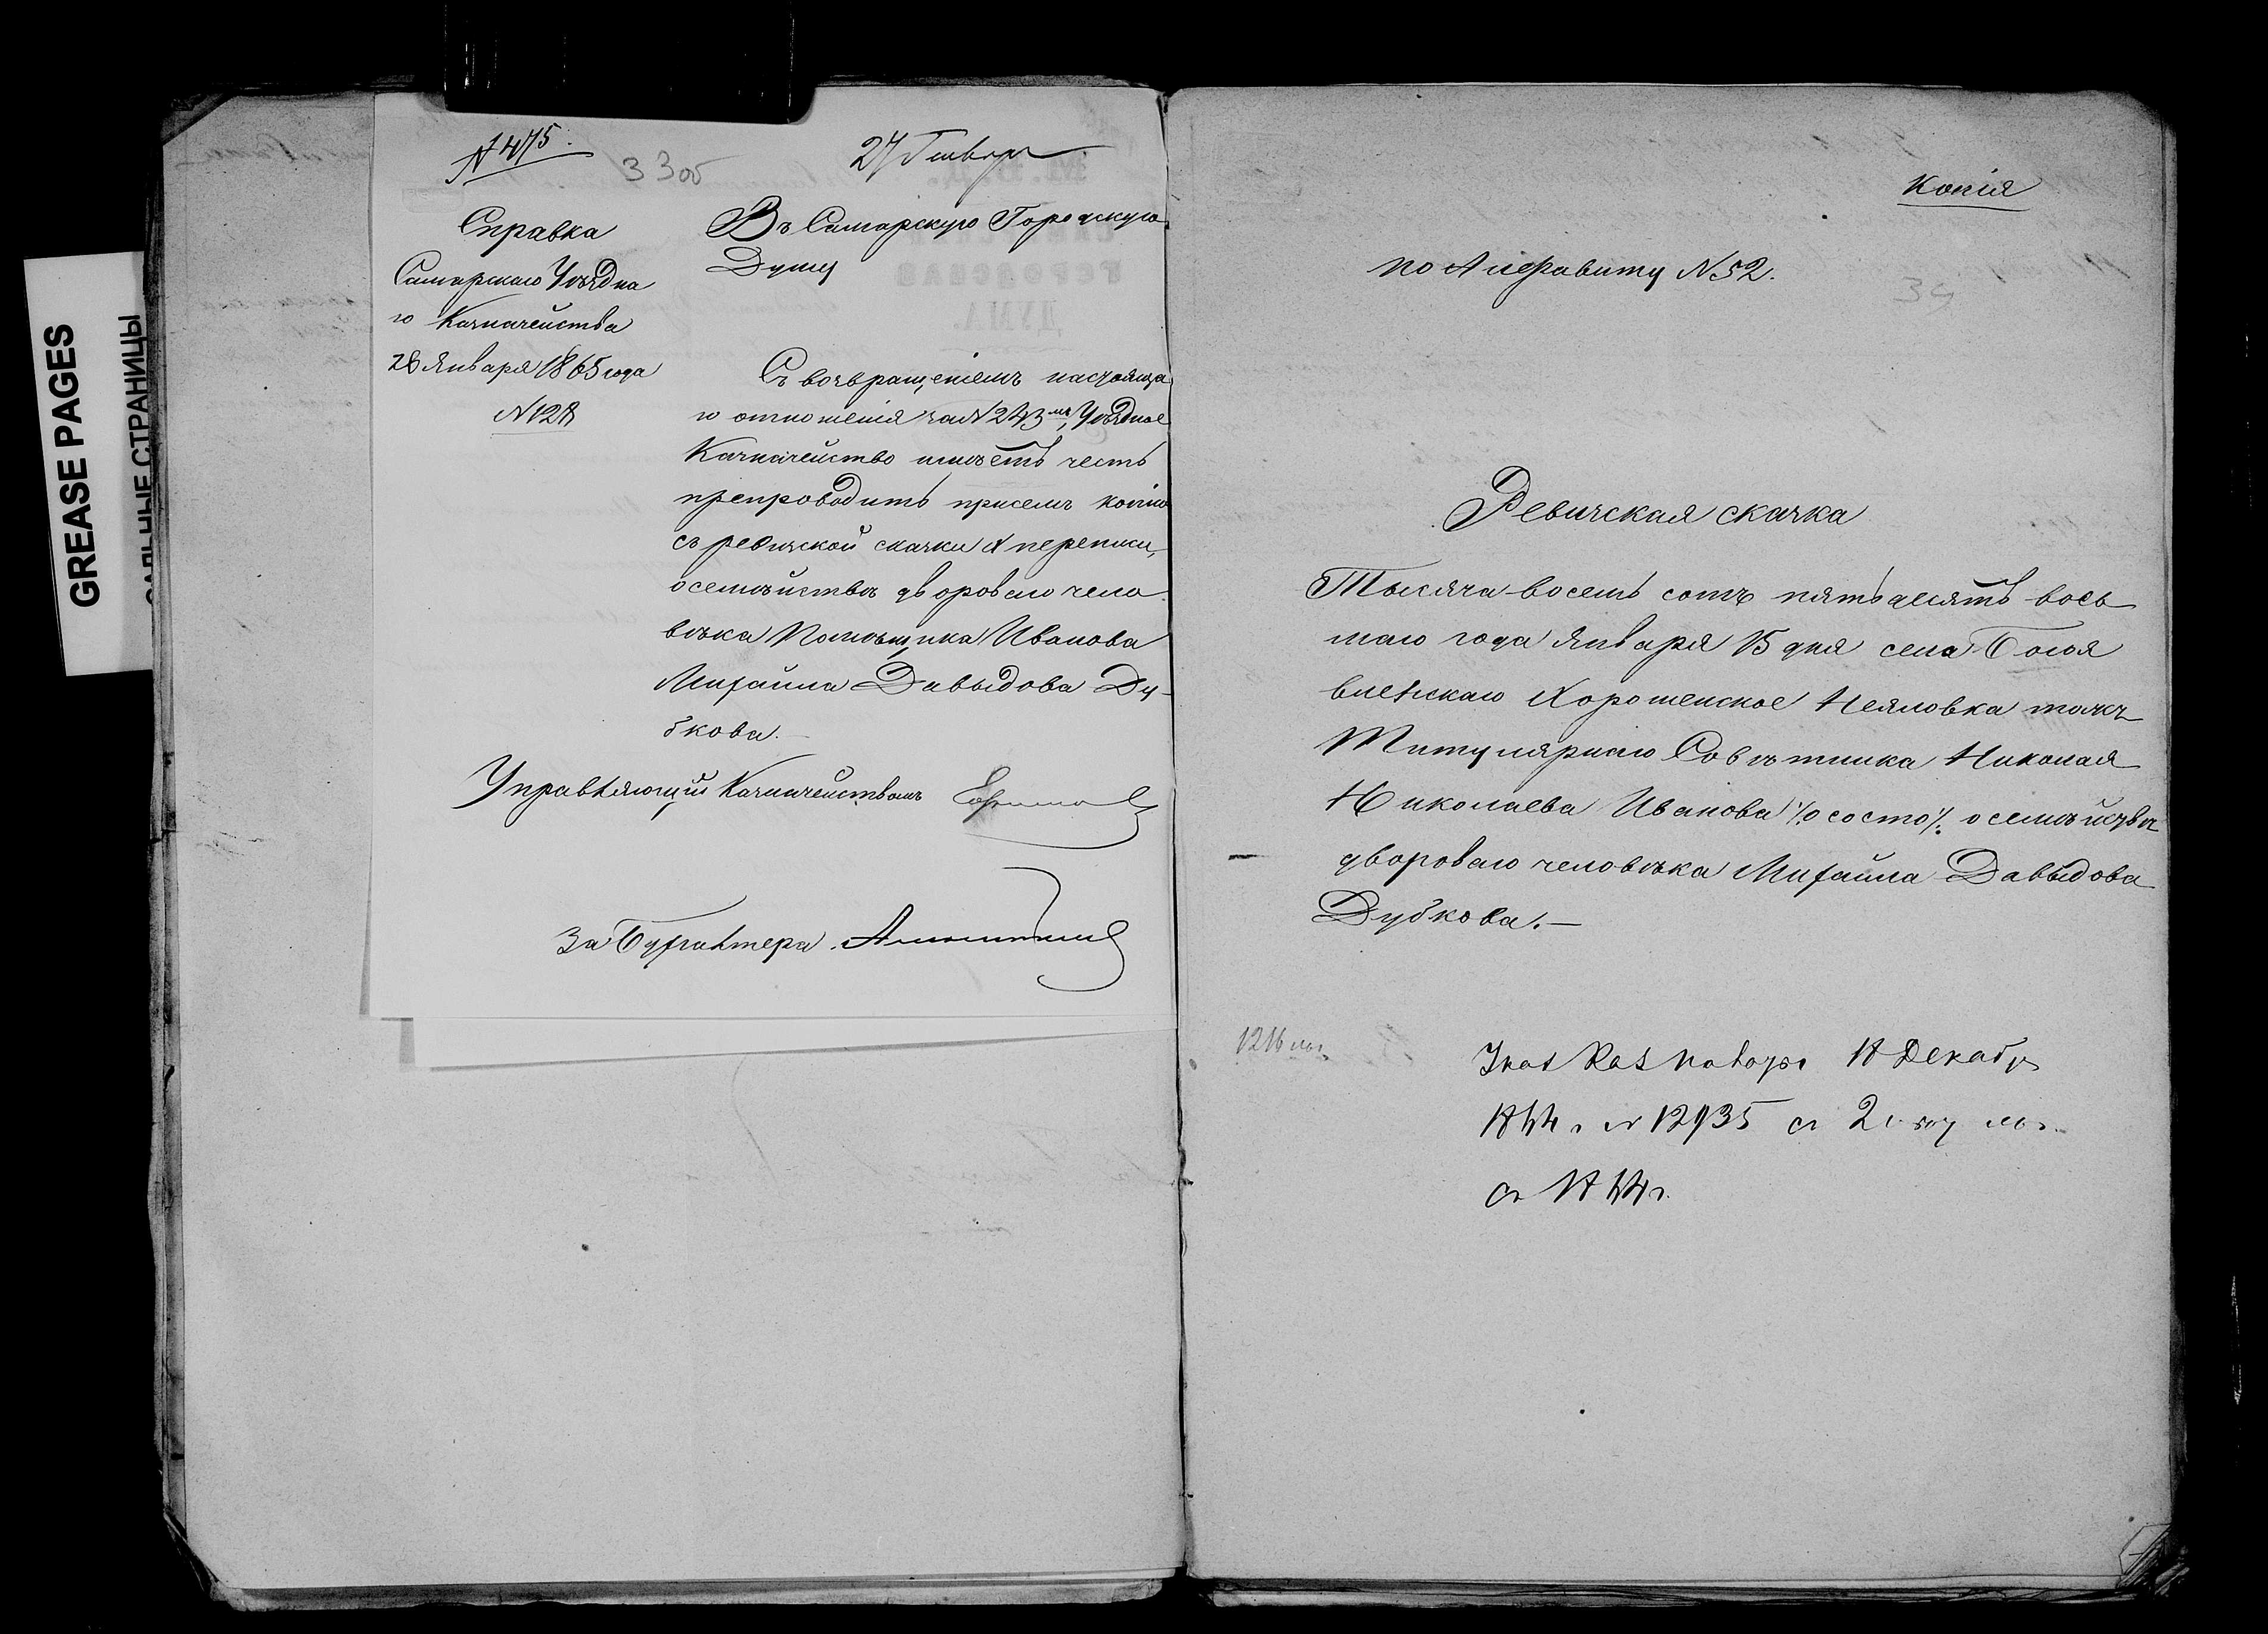 GREASE PAGES
САЛЬНЫЕ СТРАНИЦЫ
N 475.
33об
27 Января
Справка
Самарскаго Уѣздна
го Казначейства
26 Января 1865 года
N 128
Въ Самарскую Городскую
Думу
Съ возвращеніемъ настояща
го отношенія за N 243мъ, Уѣздное
Казначейство имѣетъ честь
препроводить присемъ копію
съ ревизской сказки X переписи,
о семѣйствѣ двороваго чело
вѣка Помѣщика Иванова
Михайла Давыдова Ду-
бкова.
Управляющій Казначействомъ
За Бухгалтера
Копія
по Алфавиту N 52.
34
Ревизская сказка
Тысяча восемь сотъ пятьдесятъ вось
маго года Января 15 дня села Богоя
вленскаго Хорошенское Неяловка тожъ
Титулярнаго Совѣтника Николая
Николаева Иванова о состо о семѣйствѣ
двороваго человѣка Михайла Давыдова
Дубкова.—
18 Декабр
N 12935 съ 2